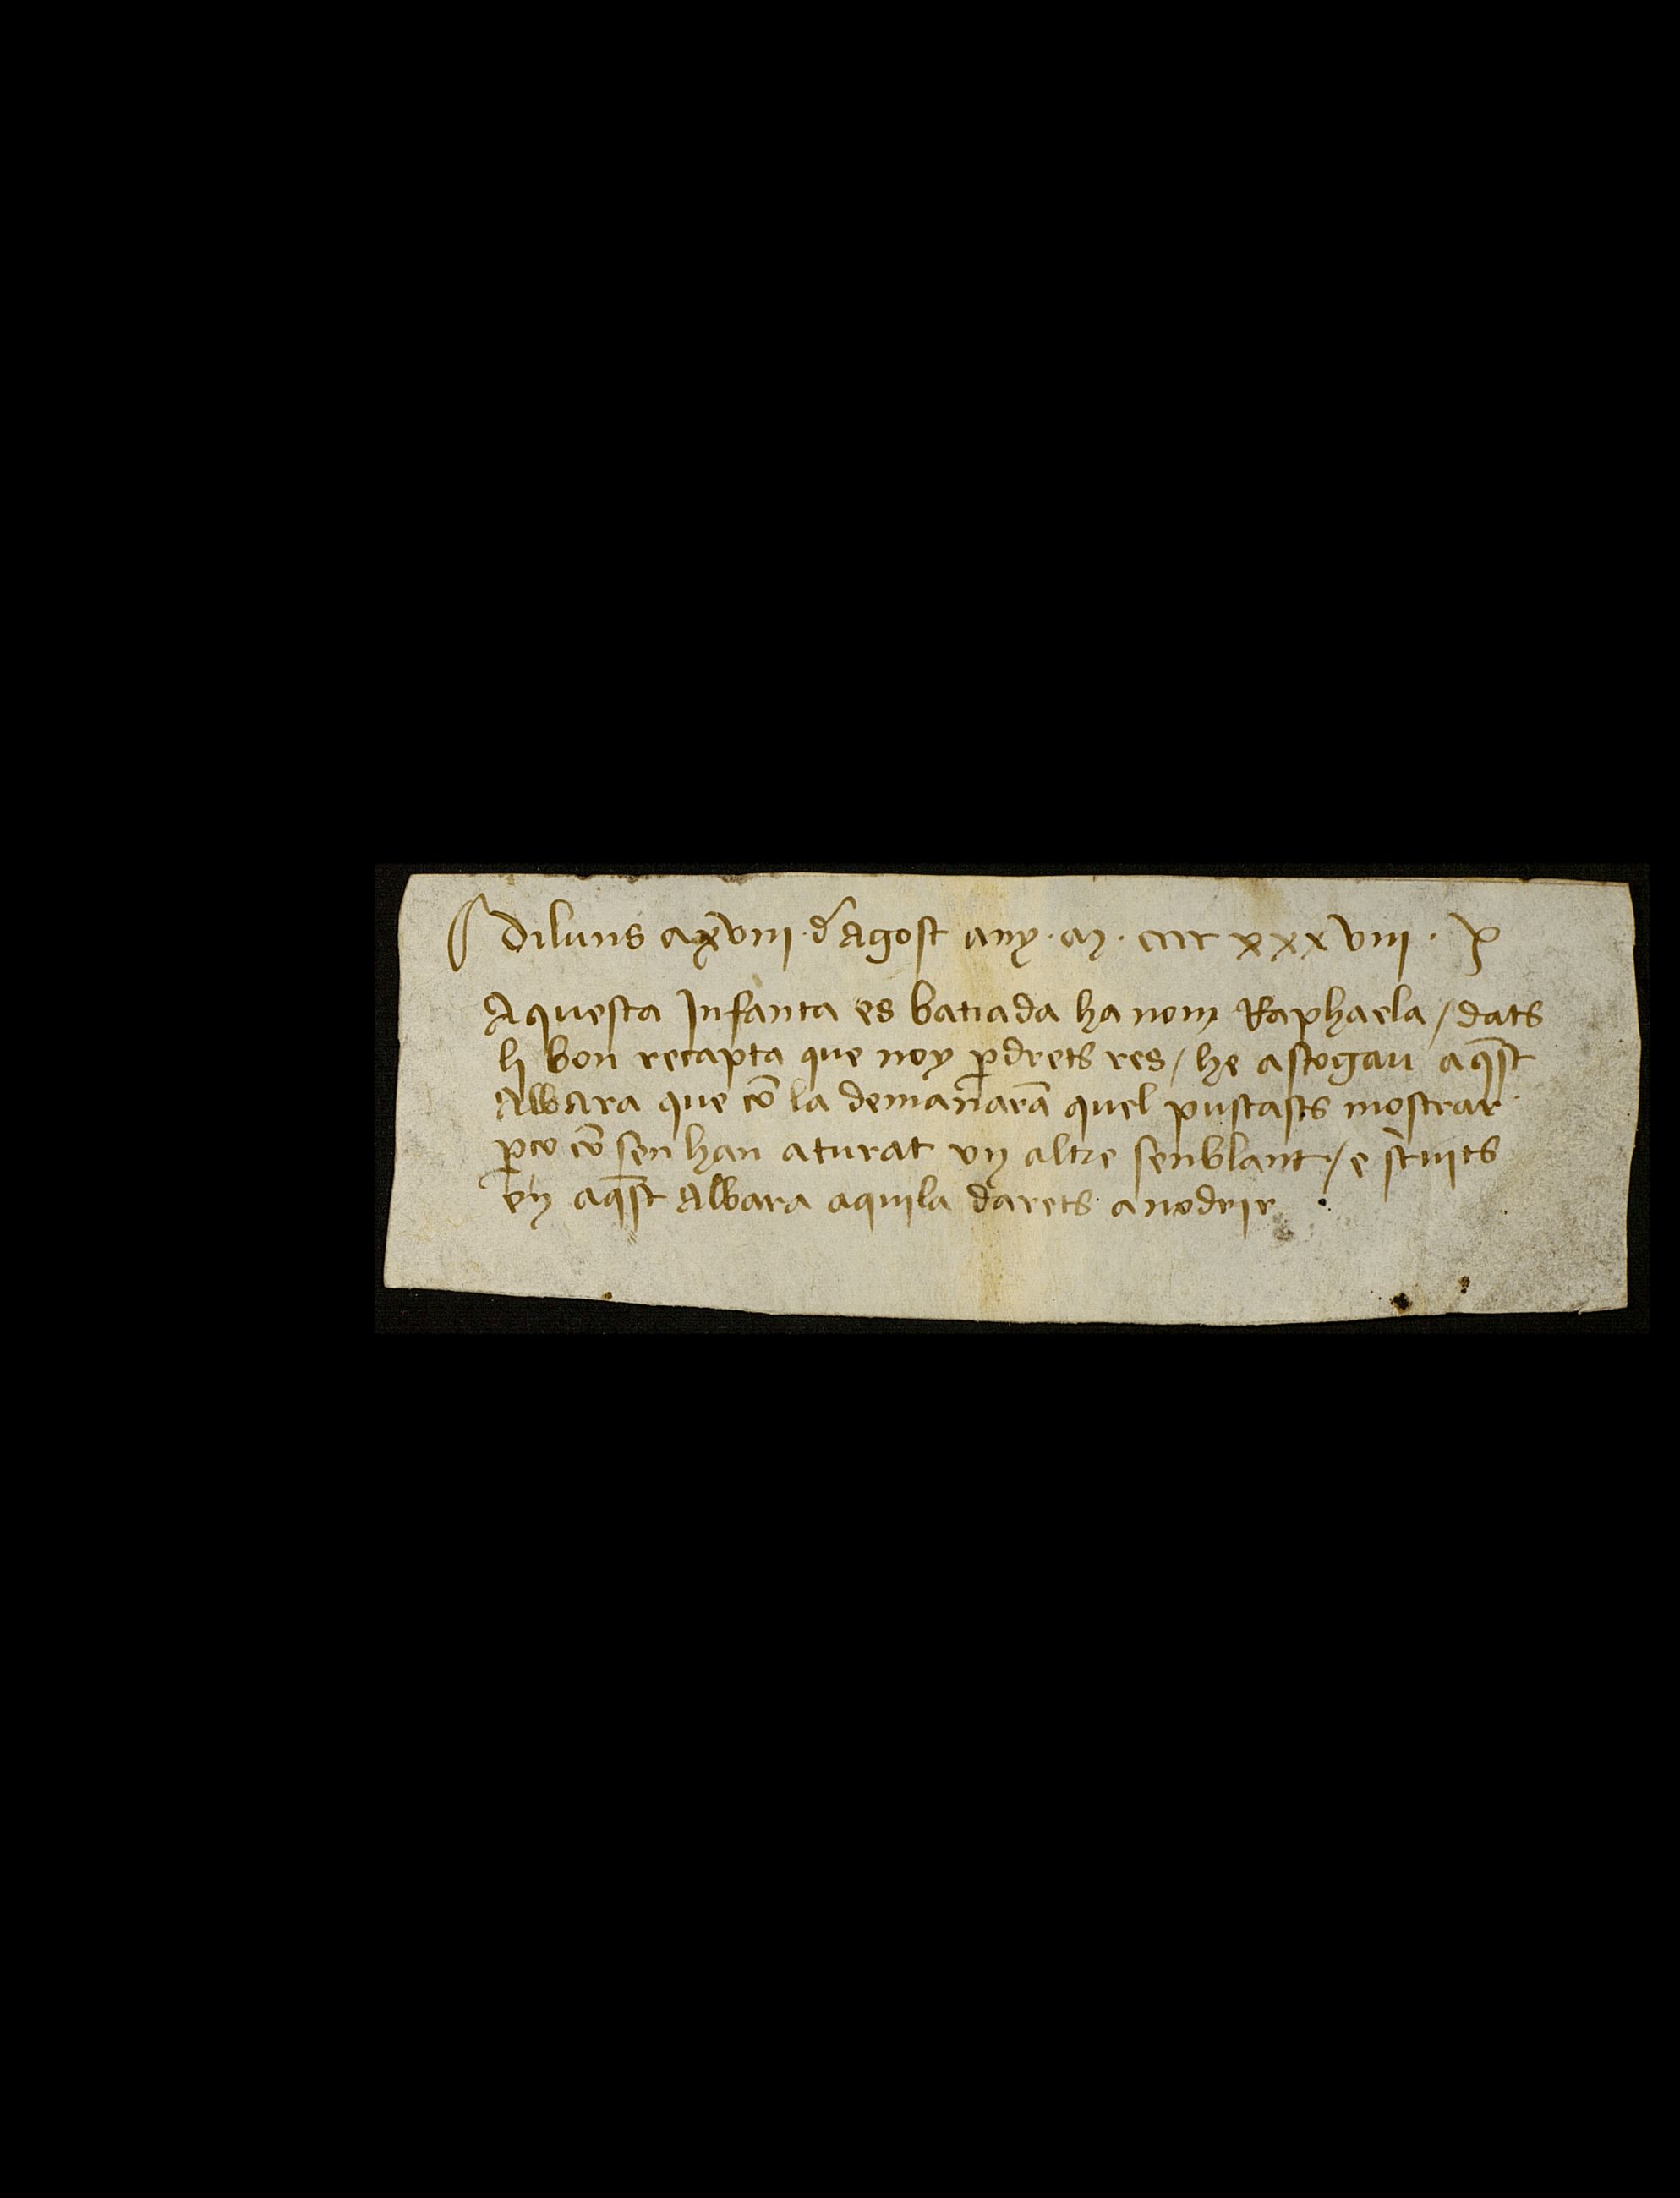 Diluns a xviii d Agost any · m · cccc xxx viii ·
Aquesta Infanta es batiada ha nom Raphaela / dats
li bon recapta que noy p̱drets res / he astogau aq̄st
Albara que cō la demanarā quel pustasts mostrar
p̱co cō sen han aturat vn altre senblant · / e scrivits
en aq̄st Albara aquila darets a nodrir ·